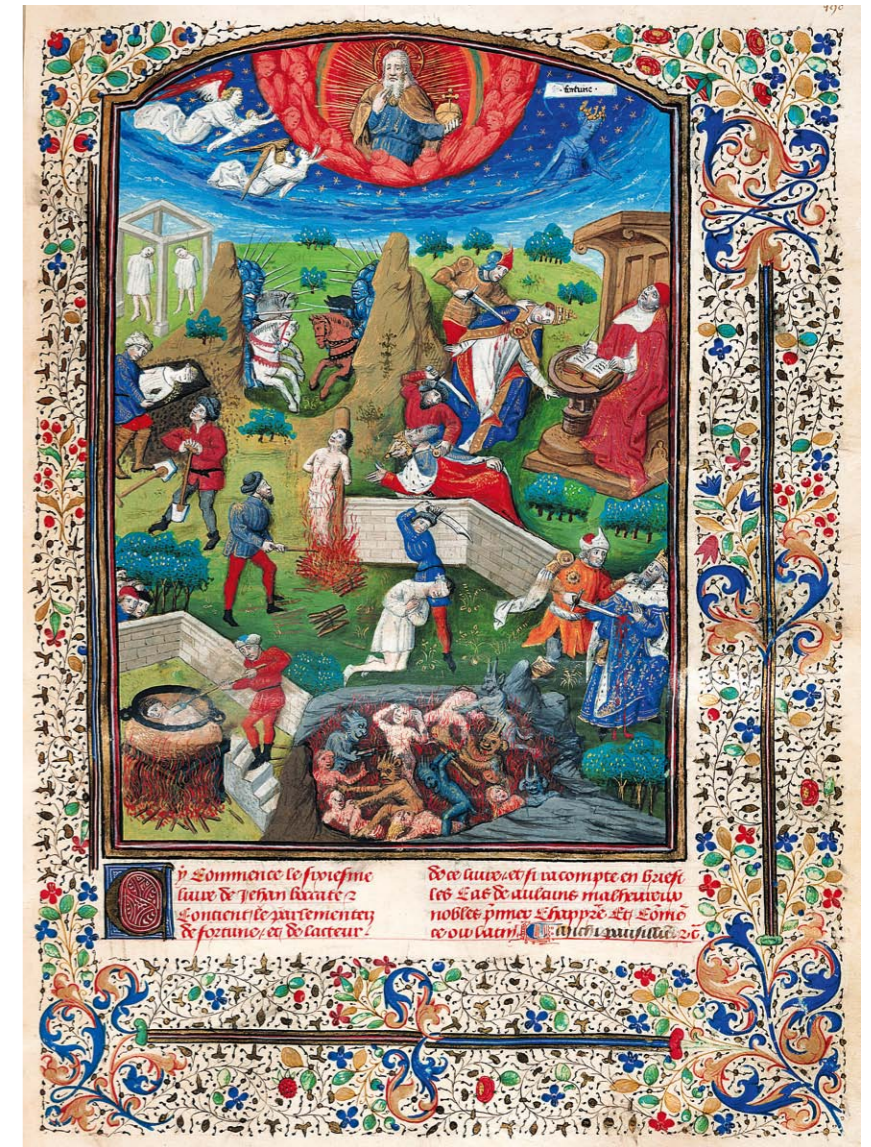 190
fortune
Cy Commence le sixiesme
liure de Jehan bocace &
Contient le parlement
de fortune et de lacteur
de ce liure et si racompte en brief
les Cas de aulcuns malheureux
nobles
ce ou latin